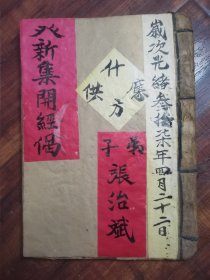 歲次光緒叁拾柒年四月二十二日
什方應供
弟子張治斌
新集開經偈